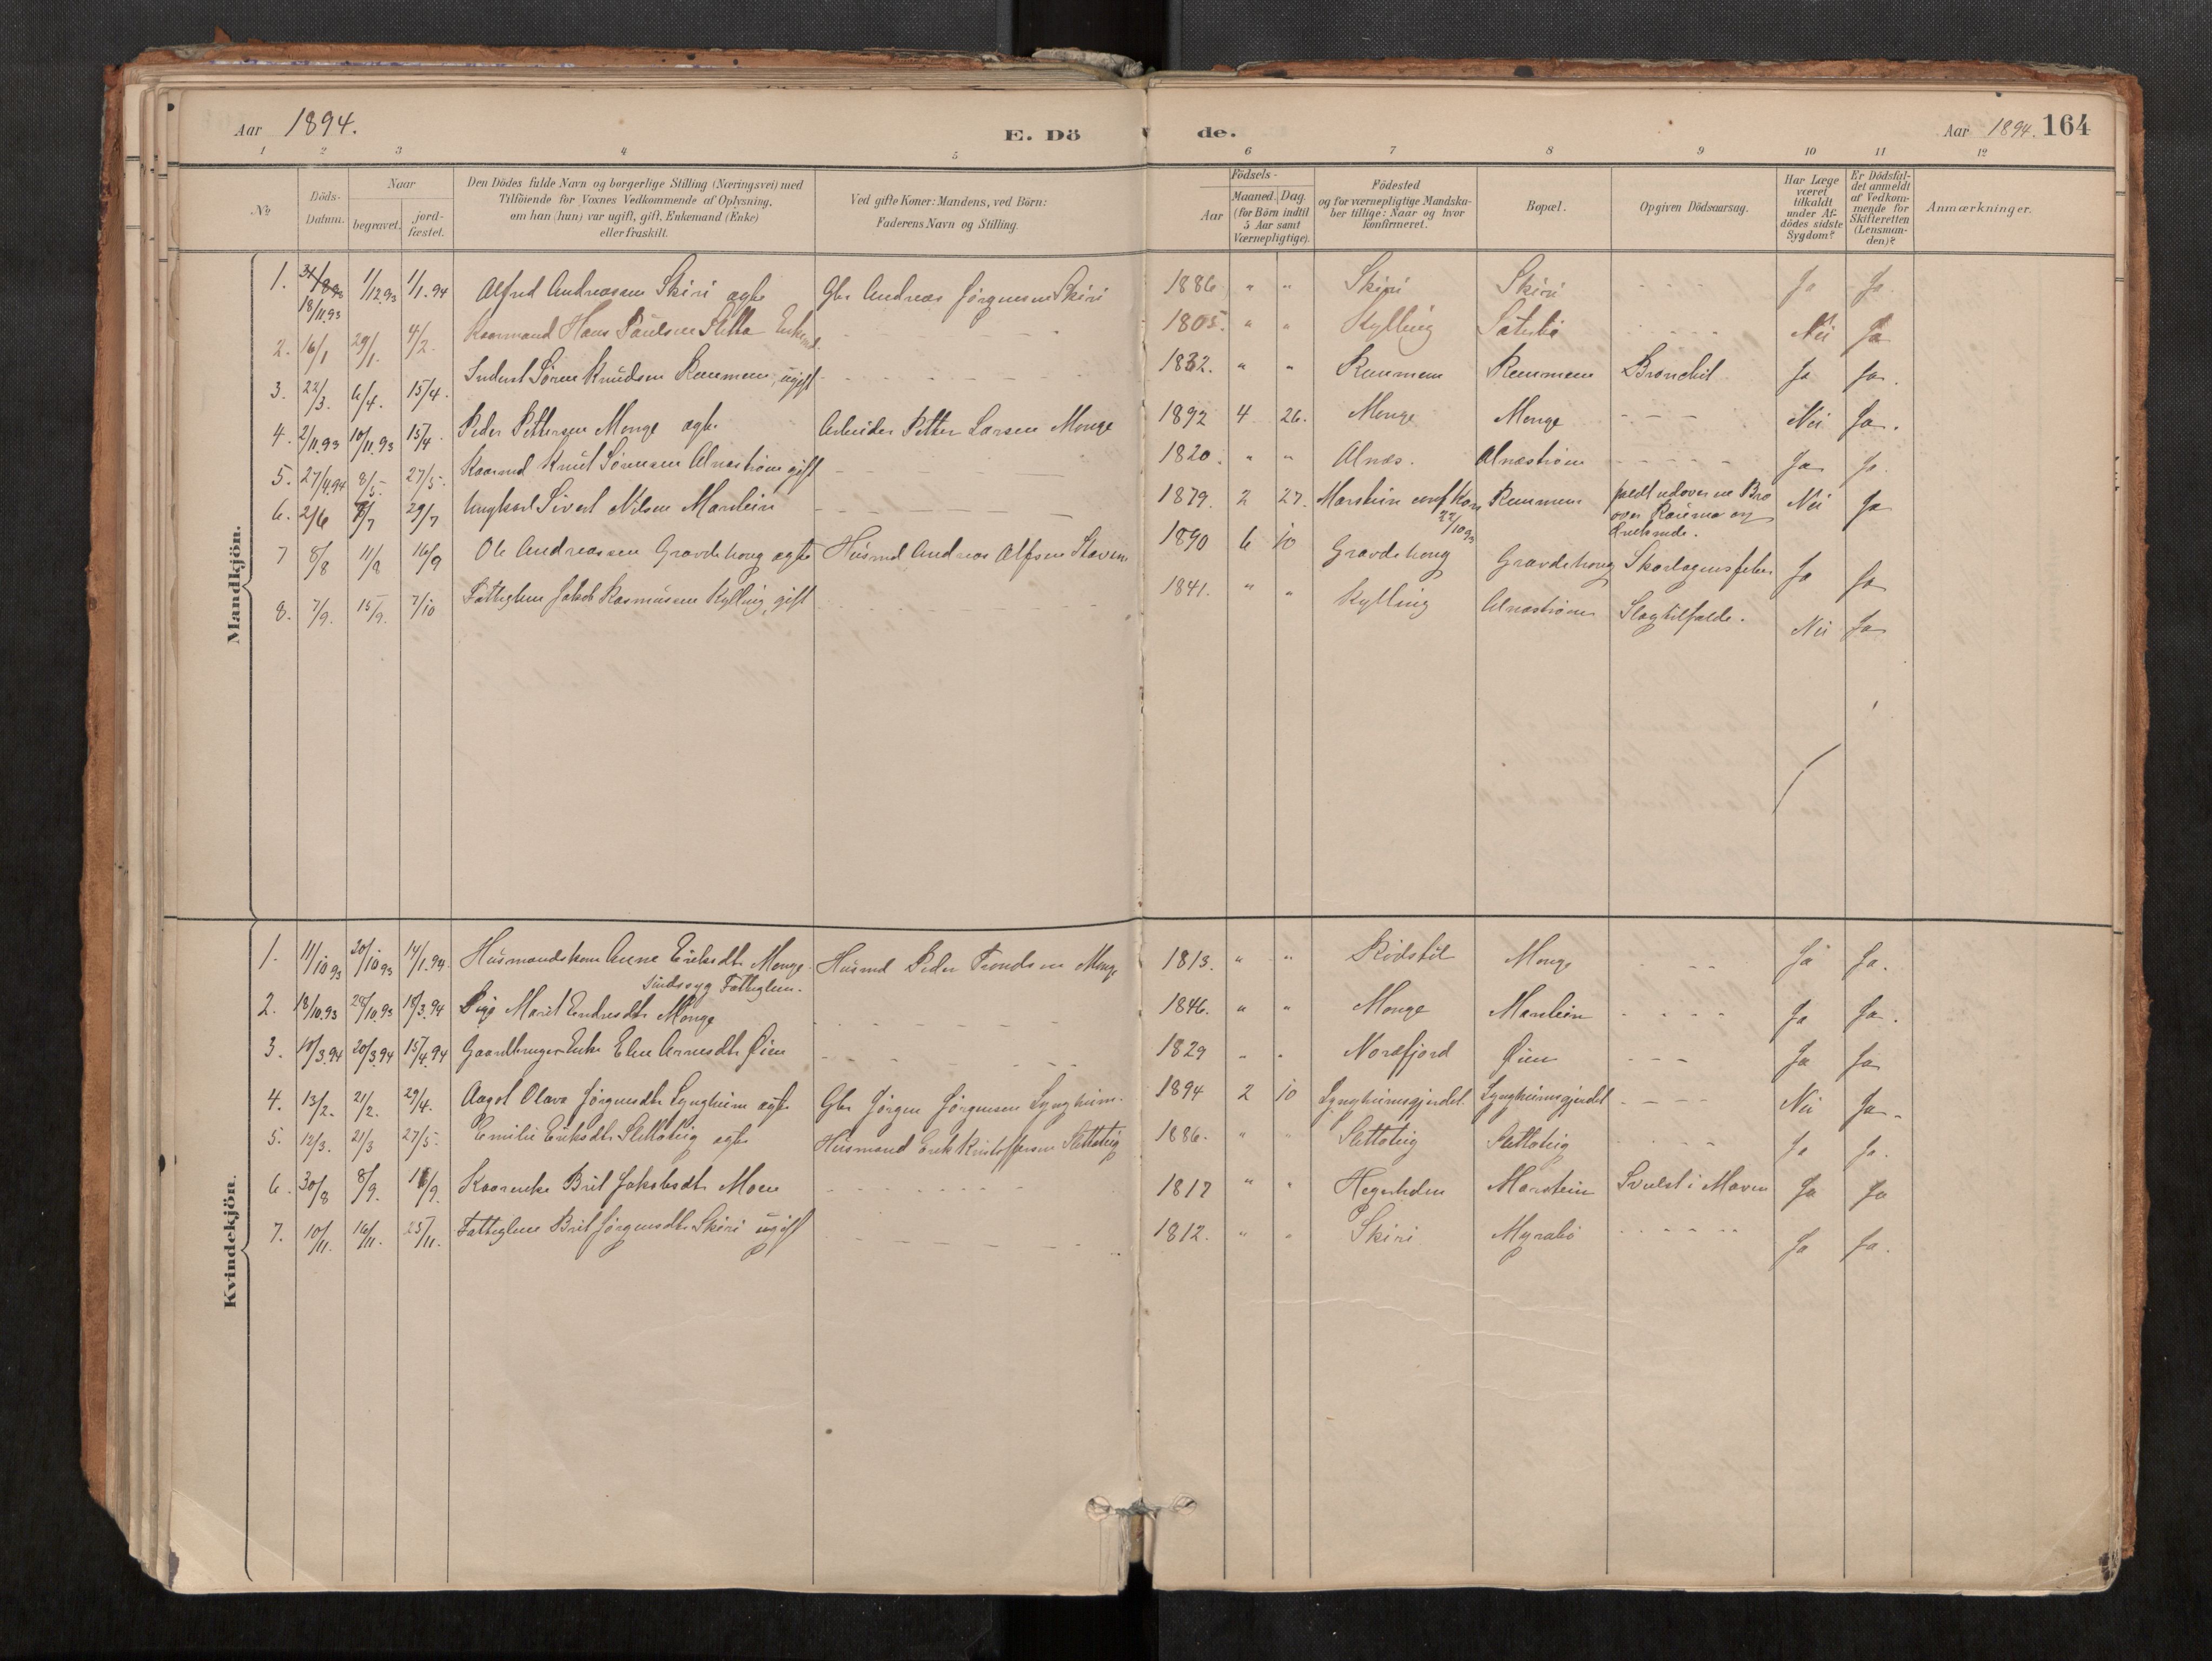 Aar 1894.
E. Dö
de.
Aar 1894. 164
1 2 3 4 5 6 7 8 9 10 11 12
No
Döds-Datum.
Naar
begravet.
jord-fæstet.
Den Dödes fulde Navn og borgerlige Stilling (Næringsvei) med
Tilföiende for Voxnes Vedkommende af Oplysning,
om han (hun) var ugift, gift, Enkemand (Enke)
eller fraskilt.
Ved gifte Koner: Mandens, ved Börn:
Faderens Navn og Stilling.
Födsels-
Aar
Maaned. Dag.
(for Börn indtil
5 Aar samt
Værnepligtige).
Födested
og for værnepligtige Mandska-
ber tillige: Naar og hvor
konfirmeret.
Bopæl.
Opgiven Dödsaarsag.
Har Læge
været
tilkaldt
under Af-
dödes sidste
Sygdom?
Er Dödsfal-
det anmeldt
af Vedkom-
mende for
Skifteretten
(Lensman-
den)?
Anmærkninger.
Mandkjön.
1. 18/11.93 1/12.93 1/1.94 Alfred Andreassen Skiri ægte Gbr Andreas Jørgensen Skiri 1886 " " Skiri Skiri - - - Ja Ja.
2. 16/1 29/1. 4/2. Kaarmand Hans Paulsen Sletta Enkemd. - - - 1805. " " Kylling Sæterbø - - - Nei Ja
3. 22/3. 6/4. 15/4. Inderst Søren Knudsen Remmem, ugift - - - 1832. " " Remmem Remmem Bronchit Ja Ja.
4. 2/11.93 10/11.93 15/4. Peder Pettersen Monge ægte Arbeider Petter Larsen Monge 1892 4 26. Monge Monge - - - Nei Ja.
5. 27/4.94 8/5. 27/5. Kaarmd Knut Sørensen Alnæstrøm gift - - - 1820. " " Alnæs. Alnæstrøm - - - Ja Ja.
6. 2/6 8/7 29/7 Ungkarl Sivert Nilsen Marstein - - - 1879. 2 27. Marstein conf Kors 22/10 93 Remmem faldt udover en Bro over Rauma og druknede. Nei Ja
7 8/8 11/8 16/9 Ole Andreassen Gravdehaug ægte Husmd Andreas Alfsen Staven 1890 6 10 Gravdehaug Gravdehaug Skarlagensfeber Ja Ja
8. 7/9. 15/9. 7/10 Fattiglem Jakob Rasmussen Kylling, gift - - - 1841. " " Kylling Alnæstrøm Slagtilfælde. Nei Ja
Kvindekjön.
1. 11/10 93 20/10 93 14/1.94. Husmandskone Anne Eriksdtr Monge Husmd Peder Trondsen Monge 1813. " " Rødstøl Monge - - - Ja Ja.
Sindssyg Fattiglem.
2. 18/10.93 28/10.93 18/3.94 Pige Marit Endresdtr Monge - - - 1846. " " Monge Marstein - - - Ja Ja.
3. 10/3.94 20/3.94 15/4.94 Gaardbruger Enke Elen Arnesdtr Øien - - - 1829 " " Norafjord Øien - - - Ja Ja
4. 13/2. 21/2. 29/4. Aagot Olava Jørgensdtr Lyngheim ægte Gbr Jørgen Jørgensen Lyngheim. 1894 2 10 Lyngheimsgjerdet. Lyngheimsgjerdet - - - Nei Ja.
5. 12/3. 21/3 27/5. Emilie Eriksdtr Slettøteig ægte Husmand Erik Kristoffersen Slettøteig 1886. " " Slettøteig Slettøteig - - - Ja Ja.
6. 30/8 8/9. 16/9. Kaarenke Brit Jakobsdtr Moen - - - 1817 " " Hegerholm Marstein Svulst i Maven Ja Ja
7. 10/11. 16/11. 25/11. Fattiglem Brit Jørgensdtr Skiri ugift - - - 1812. " " Skiri Myrabø - - - Ja Ja.